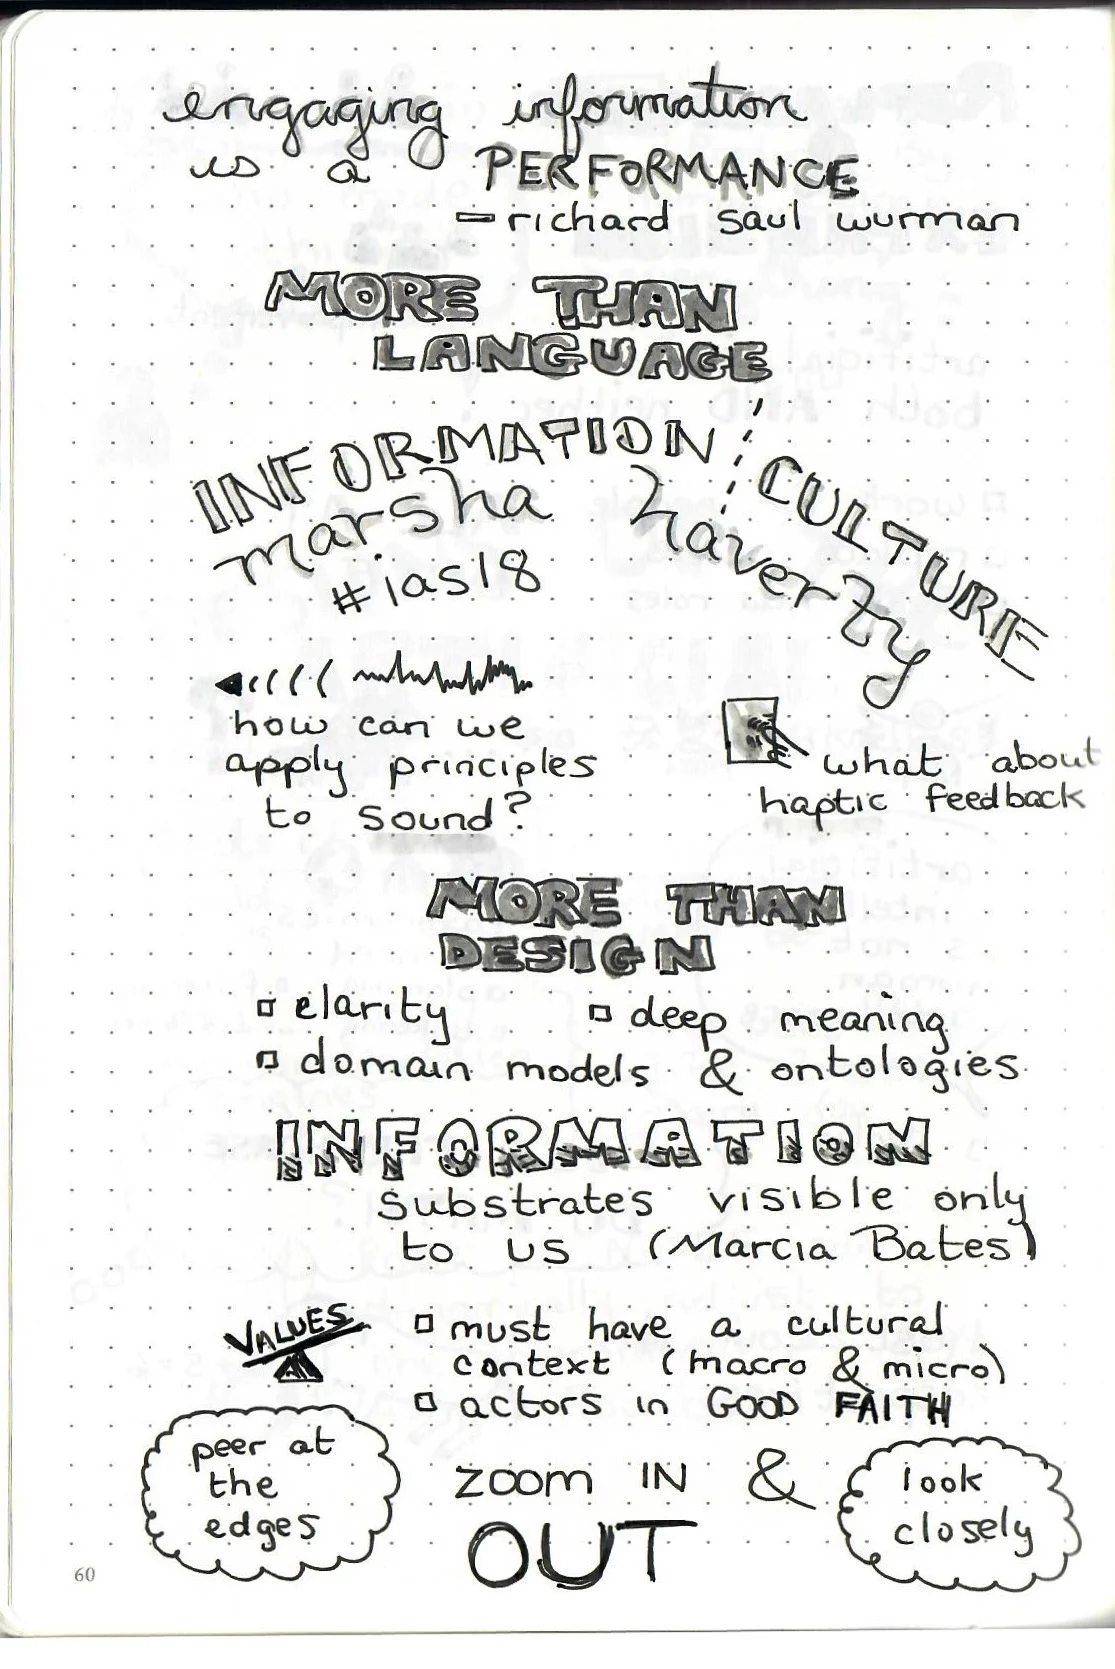 engaging information
is a PERFORMANCE
— richard saul wurman
MORE THAN
LANGUAGE
INFORMATION CULTURE
marsha haverty
#ias18
how can we
apply principles
to sound?
what about
haptic feedback
MORE THAN
DESIGN
clarity
deep meaning
domain models & ontologies
INFORMATION
substrates visible only
to us (Marcia Bates)
VALUES
must have a cultural
context (macro & micro)
actors in GOOD FAITH
peer at
the
edges
zoom IN &
OUT
look
closely
60